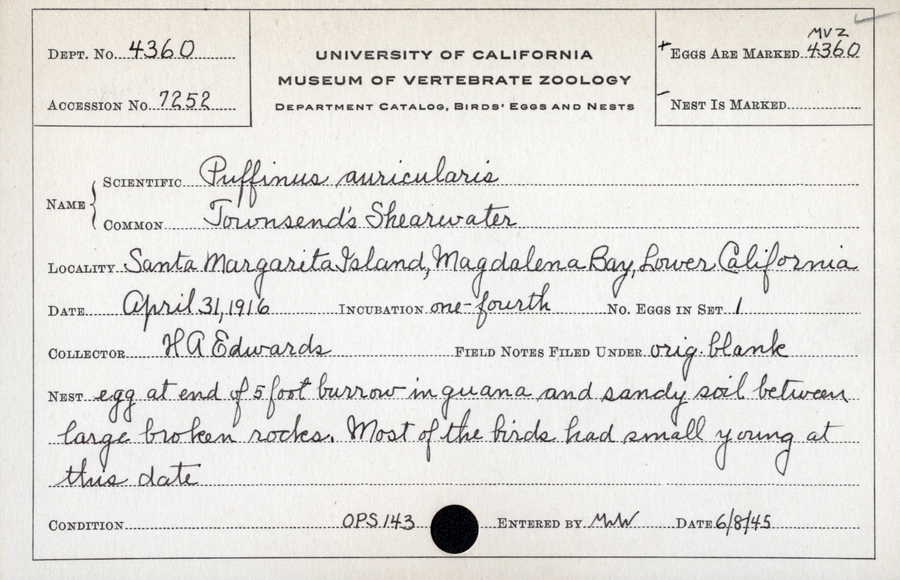 DEPT. No. 4360
ACCESSION No. 7252
UNIVERSITY OF CALIFORNIA
MUSEUM OF VERTEBRATE ZOOLOGY
DEPARTMENT CATALOG, BIRDS' EGGS AND NESTS
MVZ
+ EGGS ARE MARKED 4360
- NEST IS MARKED
NAME
SCIENTIFIC Puffinus auricularis
COMMON Townsend's Shearwater
LOCALITY Santa Margarita Island, Magdalena Bay, Lower California
DATE April 31, 1916 INCUBATION one-fourth No. EGGS IN SET 1
COLLECTOR H A Edwards FIELD NOTES FILED UNDER orig. blank
NEST egg at end of 5 foot burrow in guana and sandy soil between
large broken rocks. Most of the birds had small young at
this date
CONDITION OPS 143 ENTERED BY MWW DATE 6/8/45